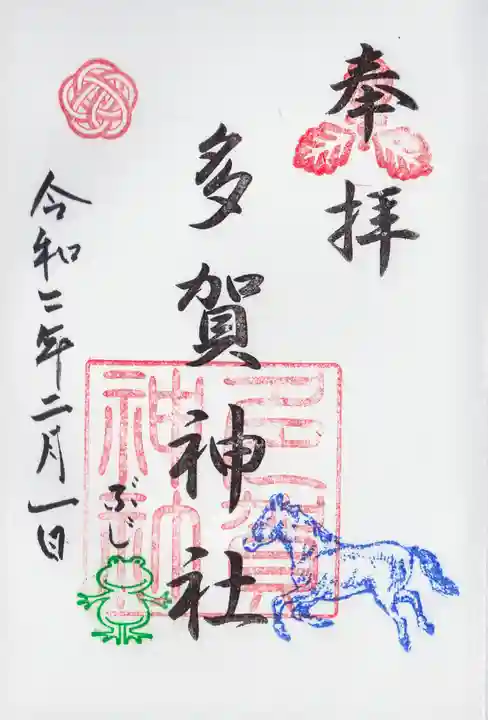 奉拝
多賀神社
多賀神社
ぶじ
令和二年二月一日